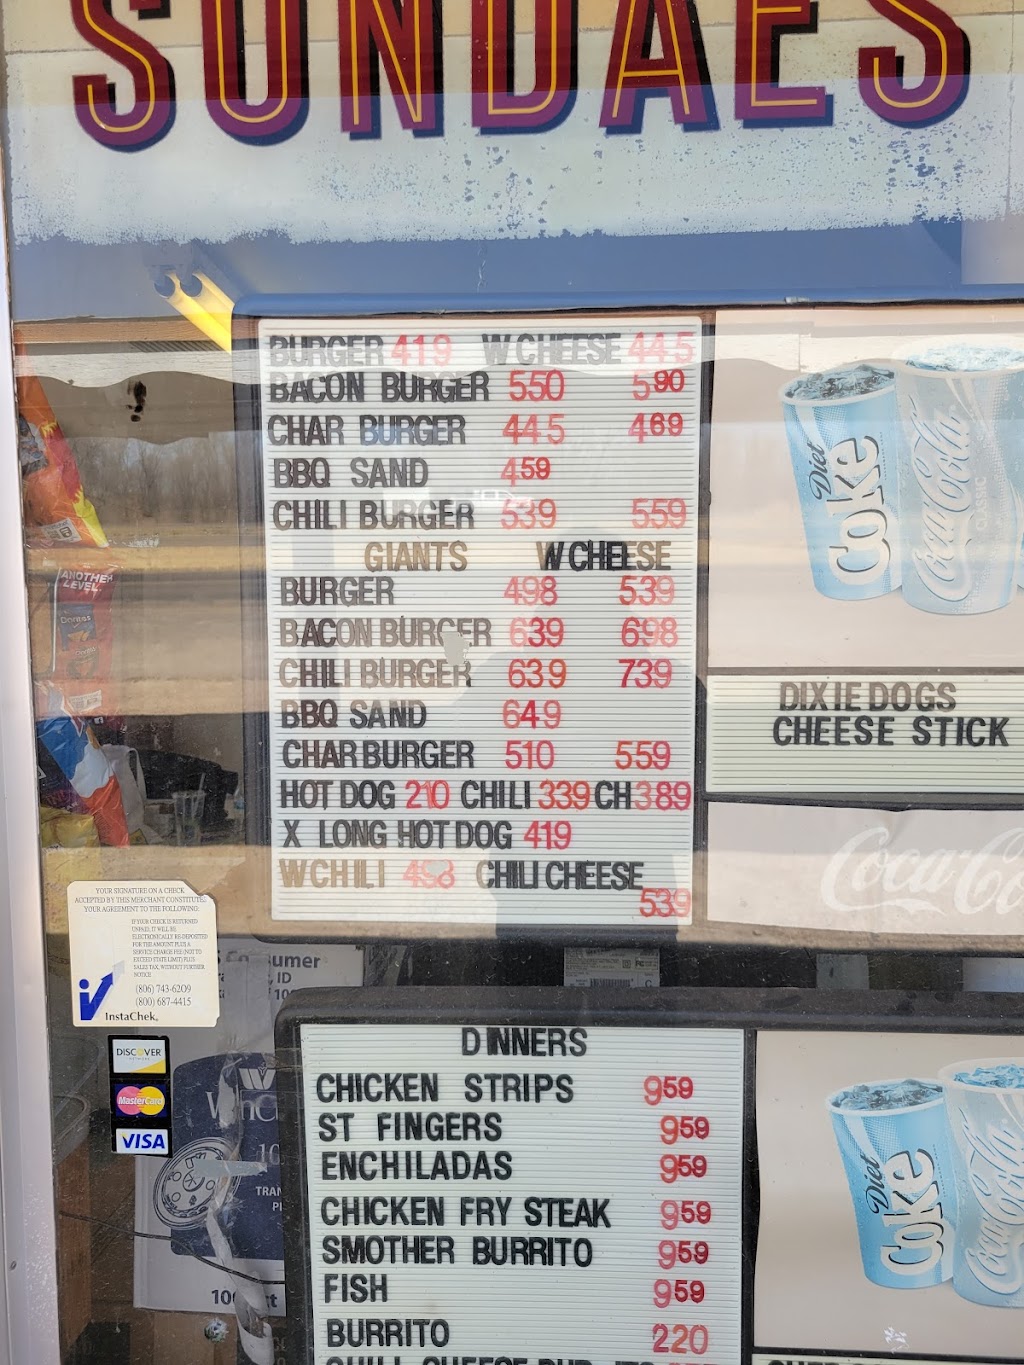 SUNDAES
BURGER 419 W CHEESE 445
BACON BURGER 550 590
CHAR BURGER 445 469
BBQ SAND 459
CHILI BURGER 539 559
GIANTS W CHEESE
BURGER 498 539
BACON BURGER 639 698
CHILI BURGER 639 739
BBQ SAND 649
CHAR BURGER 510 559
HOT DOG 210 CHILI 339 CH 389
X LONG HOT DOG 419
W CHILI 498 CHILI CHEESE
539
Diet Coke
Coca-Cola
CLASSIC
DIXIE DOGS
CHEESE STICK
Coca-Co
ANOTHER
LEVEL
Doritos
YOUR SIGNATURE ON A CHECK
ACCEPTED BY THIS MERCHANT CONSTITUTES
YOUR AGREEMENT TO THE FOLLOWING:
IF YOUR CHECK IS RETURNED
UNPAID, IT WILL BE
ELECTRONICALLY RE-DEPOSITED
FOR THE AMOUNT PLUS A
SERVICE CHARGE FEE (NOT TO
EXCEED STATE LIMIT) PLUS
SALES TAX, WITHOUT FURTHER
NOTICE
(806) 743-6209
(800) 687-4415
InstaChek.
DISCOVER
NETWORK
MasterCard
VISA
DINNERS
CHICKEN STRIPS 959
ST FINGERS 959
ENCHILADAS 959
CHICKEN FRY STEAK 959
SMOTHER BURRITO 959
FISH 959
BURRITO 220
Diet Coke
Coca-Cola